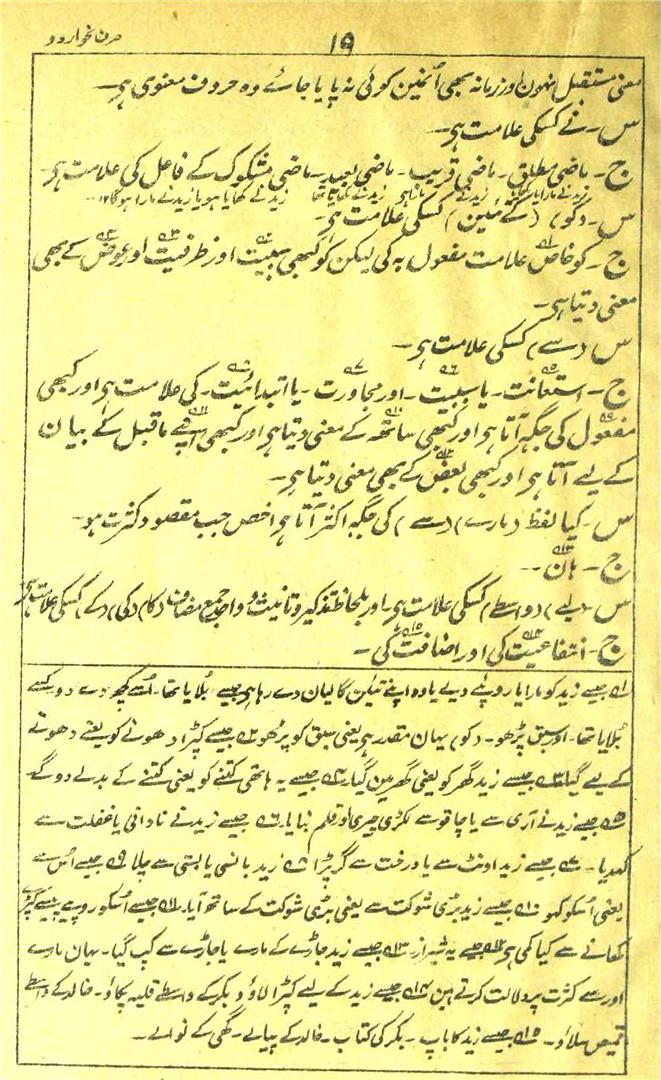 صرف نحو اردو
۱۹
معنی مستقبل نہون اور زمانہ بھی اُنمین کوئی نہ پایا جائے وہ حروف معنوی ہی۔
س۔ نے کسکی علامت ہی۔
ج۔ ماضی مطلق۔ ماضی قریب۔ ماضی بعید۔ ماضی مشکوک کے فاعل کی علامت ہی۔
زید نے مارا یا کھایا زید نے مارا ہی زید نے کھایا تھا زید نے کھایا ہو یا زید نے مارا ہوگا ۱۲
س۔ (کو) (کے تئین) کسکی علامت ہی۔
ج۔ کو خاص علامت مفعول بہ کی لیکن کو کبھی سببیت اور ظرفیت اور عوض کے بھی
معنی دیتا ہی۔
س (سے) کسکی علامت ہی۔
ج۔ استعانت۔ یا سببیت۔ اور مجاورت۔ یا ابتدائیت۔ کی علامت ہی اور کبھی
مفعول کی جگہ آتا ہی اور کبھی ساتھ کے معنی دیتا ہی اور کبھی اپنے ماقبل کے بیان
کے لیے آتا ہی اور کبھی بعض کے بھی معنی دیتا ہی۔
س۔ کیا لفظ (مارے) (سے) کی جگہ اکثر آتا ہی اخص جب مقصود کثرت ہو۔
ج۔ ہان۔
س (لیے) (واسطے) کسکی علامت ہی۔ اور بلحاظ تذکیر و تانیث و واحد جمع مضاف (کا) (کی) (کے) کسکی علامت ہی
ج۔ انتفاعیت کی اور اضافت کی۔
۱ جیسے زید کو مارا یا روپئے دیے یا وہ اپنے تئین گالیان دے رہا ہی جیسے بُلایا تھا۔ اُسے کچھ دے دو کسے
بُلایا تھا۔ اور سبق پڑھو۔ (کو) یہان مقدر ہی یعنی سبق کو پڑھو ۲ جیسے کپڑا دھونے کو یعنے دھونے
کے لیے گیا ۳ جیسے زید گھر کو یعنی گھر مین گیا ۴ جیسے یہ ہاتھی کتنے کو یعنی کتنے کے بدلے دوگے
۵ جیسے زید نے آری سے یا چاقو سے لکڑی چیری اور قلم بنایا۔ ۶ جیسے زید نے نادانی یا غفلت سے
کہدیا۔ ۷ جیسے زید اونٹ سے یا درخت سے گر پڑا ۸ زید ہانسی یا بستی سے چلا ۹ جیسے اُس سے
یعنی اُسکو کہو ۱۰ جیسے زید بڑی شوکت سے یعنی بڑی شوکت کے ساتھ آیا۔ ۱۱ جیسے اُسکو روپیے پیسے کپڑے
کھانے سے کیا کمی ہی ۱۲ جیسے یہ شیراز۔ ۱۳ جیسے زید جاڑے کے مارے یا جاڑے سے کپ گیا۔ یہان مارے
اور سے کثرت پر دلالت کرتے ہین ۱۴ جیسے زید کے لیے کپڑا لاؤ و بکر کے واسطے قلیہ پکاؤ۔ خالد کے واسطے
قمیص سلاؤ۔ ۱۵ جیسے زید کا باپ۔ بکر کی کتاب۔ خالد کے پیالے۔ گھی کے نوالے۔